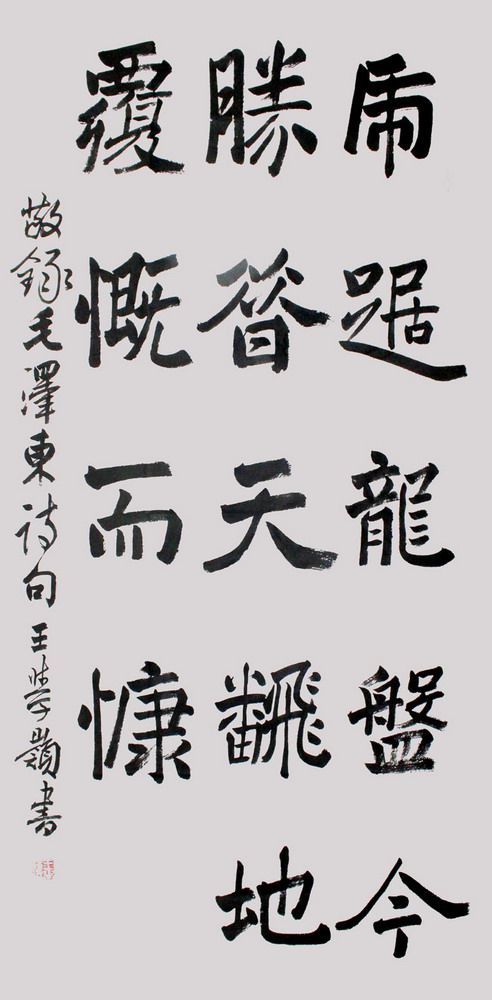 虎踞龍盤今
勝昔天飜地
覆慨而慷
敬錄毛澤東詩句 王学嶺書